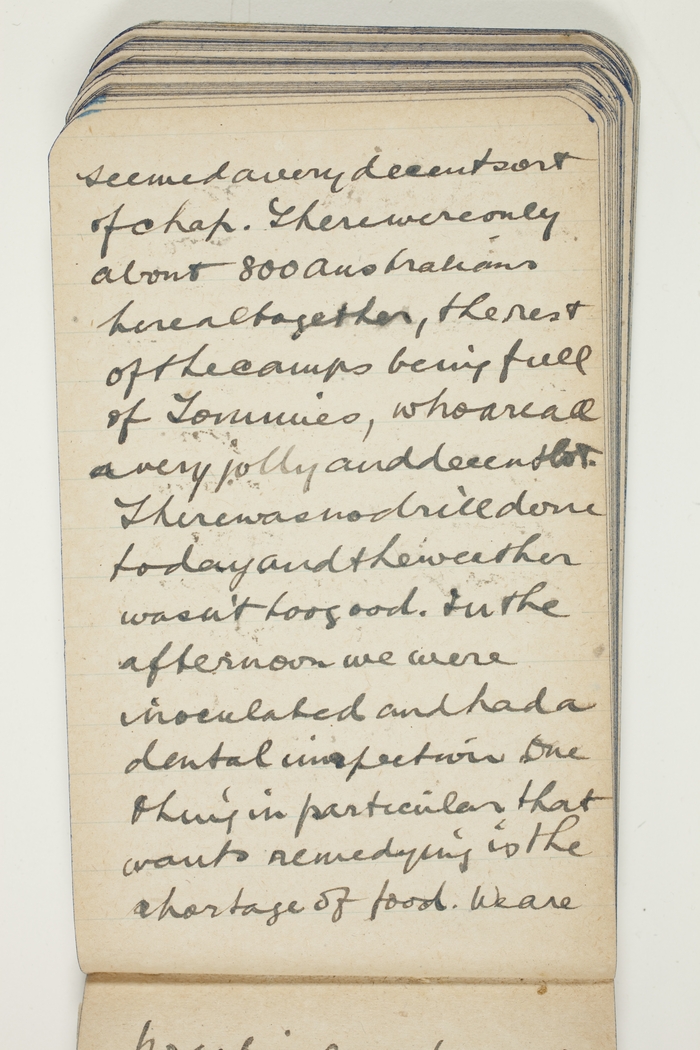 seemed a very decent sort
of chap. There were only
about 800 Australians
here altogether, the rest
of the camps being full
of Tommies, who are all
a very jolly and decent lot.
There was no drill done
today and the weather
wasn't too good. In the
afternoon we were
inoculated and had a
dental inspection One
thing in particular that
wants remedying is the
shortage of food. We are